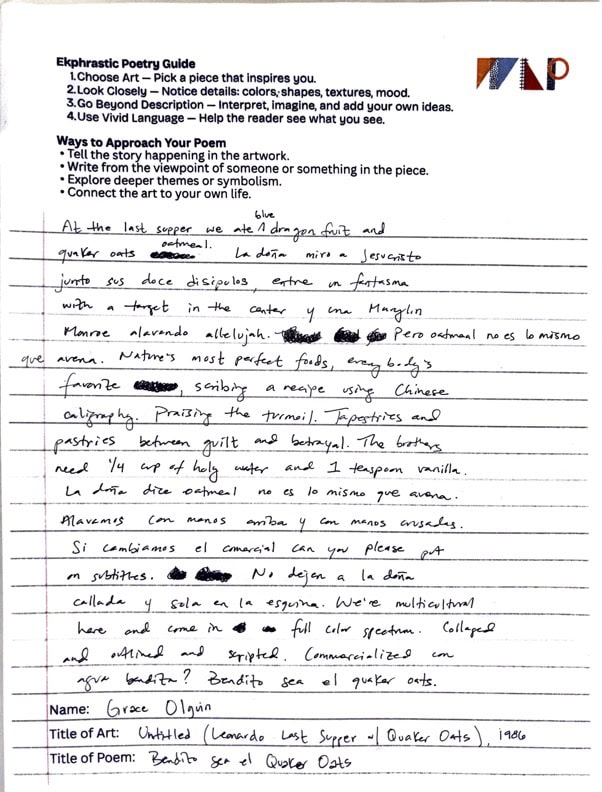 Ekphrastic Poetry Guide
1. Choose Art — Pick a piece that inspires you.
2. Look Closely — Notice details: colors, shapes, textures, mood.
3. Go Beyond Description — Interpret, imagine, and add your own ideas.
4. Use Vivid Language — Help the reader see what you see.
WAP
Ways to Approach Your Poem
• Tell the story happening in the artwork.
• Write from the viewpoint of someone or something in the piece.
• Explore deeper themes or symbolism.
• Connect the art to your own life.
At the last supper we ate blue dragon fruit and
quaker oats oatmeal. La doña miro a Jesucristo
junto sus doce disipulos, entre un fantasma
with a target in the center y una Marylin
Monroe alavando allelujah. Pero oatmeal no es lo mismo
que avena. Nature's most perfect foods, everybody's
favorite, scribing a recipe using Chinese
caligraphy. Praising the turmoil. Tapestries and
pastries between guilt and betrayal. The brothers
need 1/4 cup of holy water and 1 teaspoon vanilla.
La doña dice oatmeal no es lo mismo que avena.
Alavamos con manos arriba y con manos crusadas.
Si cambiamos el comercial can you please put
on subtitles. No dejen a la doña
callada y sola en la esquina. We're multicultural
here and come in full color spectrum. Collaged
and outlined and scripted. Commercialized con
agua bendita? Bendito sea el quaker oats.
Name: Grace Olguin
Title of Art: Untitled (Leonardo Last Supper w/ Quaker Oats), 1986
Title of Poem: Bendito sea el Quaker Oats